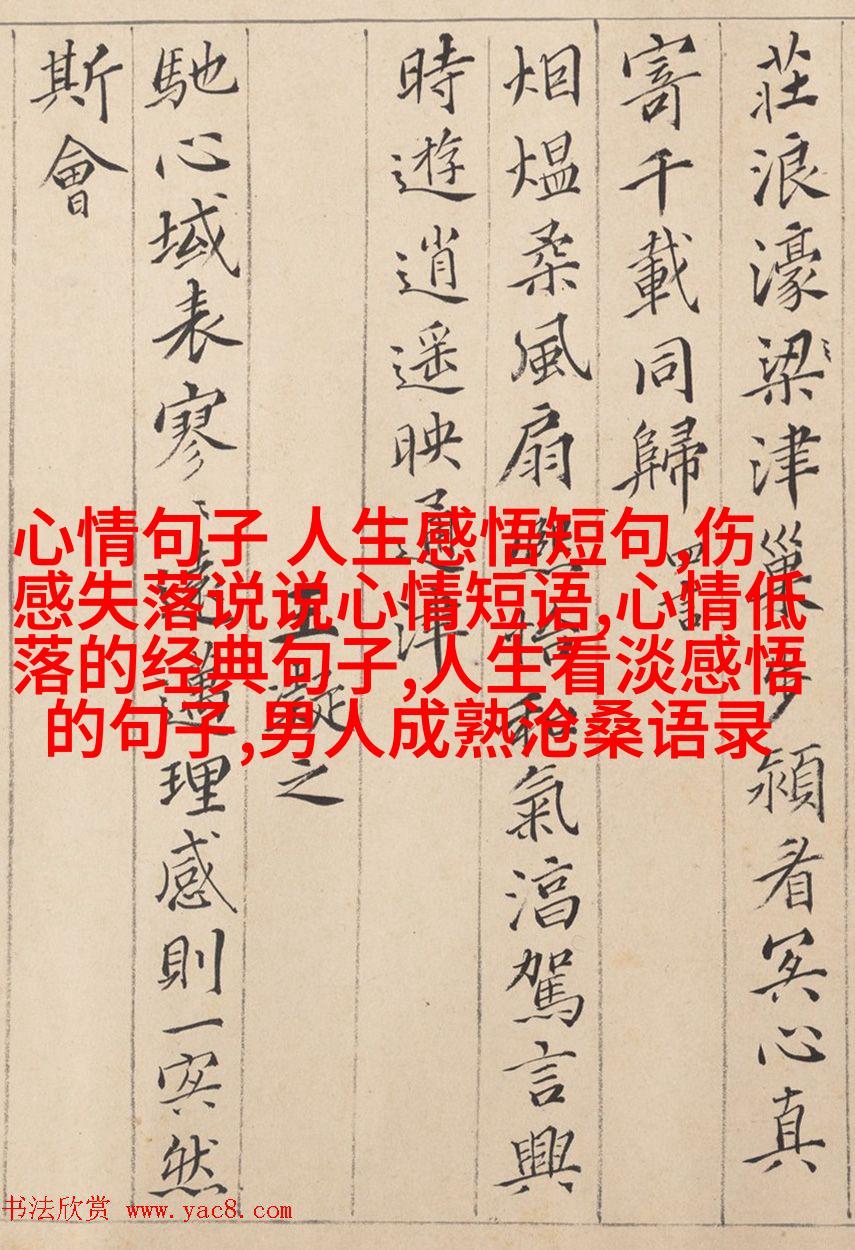 莊浪濠梁津巢步潁看冥心真
寄千載同歸 四言
烟熅柔風扇熙怡和氣淳駕言興
時遊逍遙映通津
王凝之
馳心域表寥〻遠邁理感則一冥然
斯會
心情句子 人生感悟短句,伤
感失落说说心情短语,心情低
落的经典句子,人生看淡感悟
的句子,男人成熟沧桑语录
书法欣赏 www.yac8.com